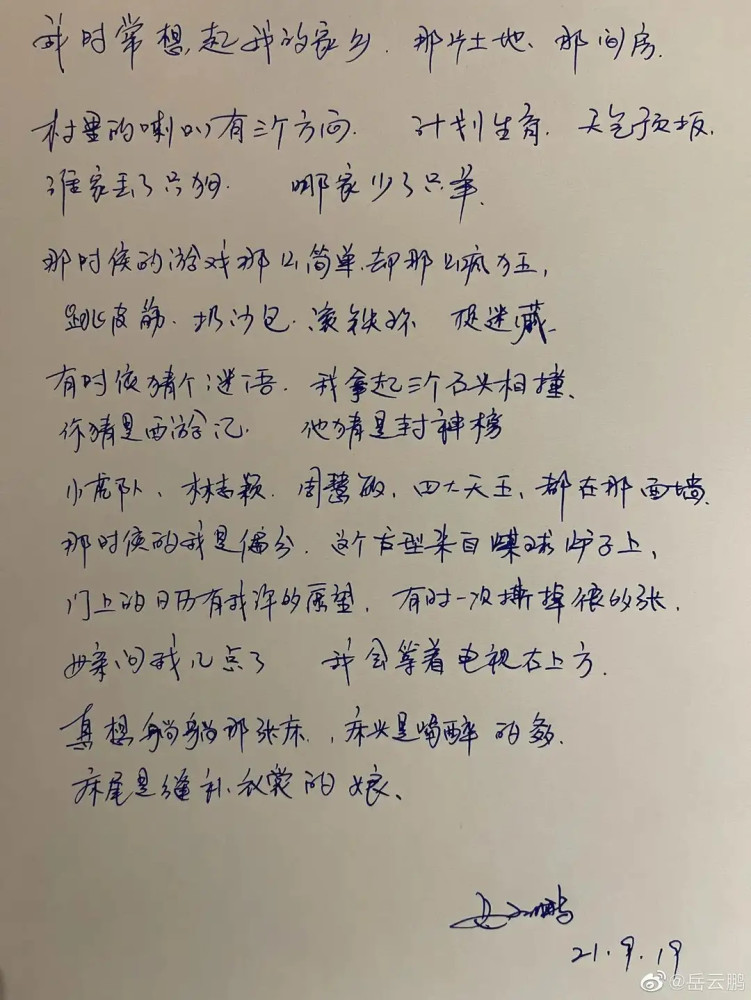 我时常想起我的家乡. 那片土地、那间房.
村里的喇叭有三个方向. 计划生育. 天气预报.
谁家丢了只狗. 哪家少了只羊.
那时候的游戏那么简单.却那么疯狂,
跳皮筋. 扔沙包. 滚铁环 捉迷藏.
有时候猜个谜语. 我拿起三个石头相撞.
你猜是西游记. 他猜是封神榜
小虎队、林志颖. 周慧敏. 四大天王. 都在那面墙.
那时候的我是偏分. 这个发型来自煤球炉子上,
门上的日历有我许的愿望. 有时一次撕掉很多张.
母亲问我几点了 我会等着电视右上方.
真想躺躺那张床. 床头是喝醉的爹.
床尾是缝补衣裳的娘、
岳云鹏
21.9.19
@岳云鹏